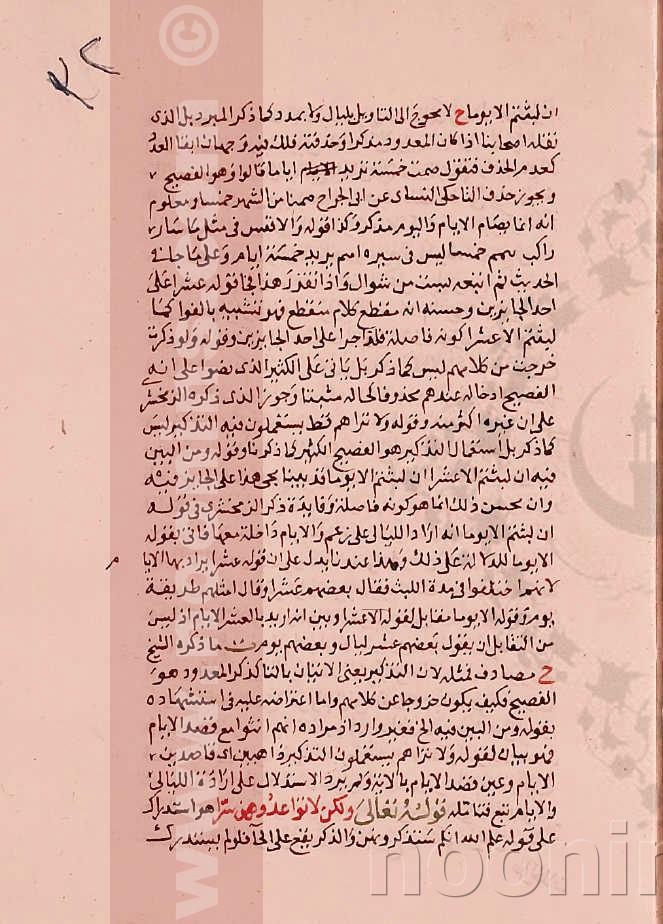 ٣٢
ان لبثتم الا يوما ح لا يحوج الى التاويل بليال ولا بمدد كما ذكر المبرد بل الذى
نقله اصحابنا اذا كان المعدود مذكرا وحذفته فلك فيه وجهان ابقا العدد
كعدم الحذف فتقول صمت خمسة تريد اياما قالوا وهو الفصيح
ويجوز حذف التا حكى الكساى عن ابى الجراح صمنا من الشهر خمسا ومعلوم
انه انما يصام الايام واليوم مذكر وكذا قوله والا فقس فى مثل ما سار
راكب يتمم خمسا ليس فى سيره امم يريد خمسة ايام وعلى ما جا فى
الحديث ثم اتبعه بست من شوال واذا تقرر هذا فى قوله عشرا على
احد الجايزين وحسنه انه مقطع كلام فهو شبيه بالفواصل كما
لبثتم الا عشرا كونه فاصلة فلذا جرا على احد الجايزين وقوله ولو ذكرت
خرجت من كلامهم ليس كما ذكر بل ياتى على الكثير الذى نصوا على انه
الفصيح اذ حاله عندهم محذوفا كحاله مثبتا وجوز الذى ذكره الزمخشرى
على ان غيره اكثر منه وقوله ولا تراهم قط يستعملون فيه التذكير ليس
كما ذكر بل استعمال التذكير هو الفصيح الكثير كما ذكرنا وقوله ومن البين
فيه ان لبثتم الا عشرا ان لبثتم الا يوما قد بينا مجى هذا على الجايز فيه
وان يحسن ذلك انما هو كونه فاصلة وفايدة ذكر الزمخشرى فى قوله
ان لبثتم الا يوما انه اراد الليالى على زعمه والايام داخلة معها فاتى بقوله
الا يوما للدلالة على ذلك وهذا عندنا يدل على ان قوله عشرا يراد بها الايام
لانهم اختلفوا فى مدة اللبث فقال بعضهم عشرا وقال امثلهم طريقة
يوم وقوله الا يوما مقابل لقوله الا عشرا وبين انه اريد بالعشر الايام اذ ليس
من التقابل ان يقول بعضهم عشر ليال وبعضهم يوم ما ذكره الشيخ
ح مصادف لمثله لان التذكير يعنى الاتيان بالتا كذكر المعدود هو
الفصيح فكيف يكون خروجا عن كلامهم واما اعتراضه عليه فى استشهاده
بقوله ومن البين فيه الخ فغير وارد اذ مراده انهم انثوا مع قصد الايام
فهو بيان لقوله ولا تراهم يستعملون التذكير ذاهبين اى قاصدين
الايام وعين قصد الايام بالاية ولم يرد الاستدلال على ارادة الليالى
والايام تبع فتامله قوله تعالى ولكن لا تواعدوهن سرا هو استدراك
على قوله علم الله انكم ستذكرونهن والذكر يقع على انحا فلو لم يستدرك
noorin